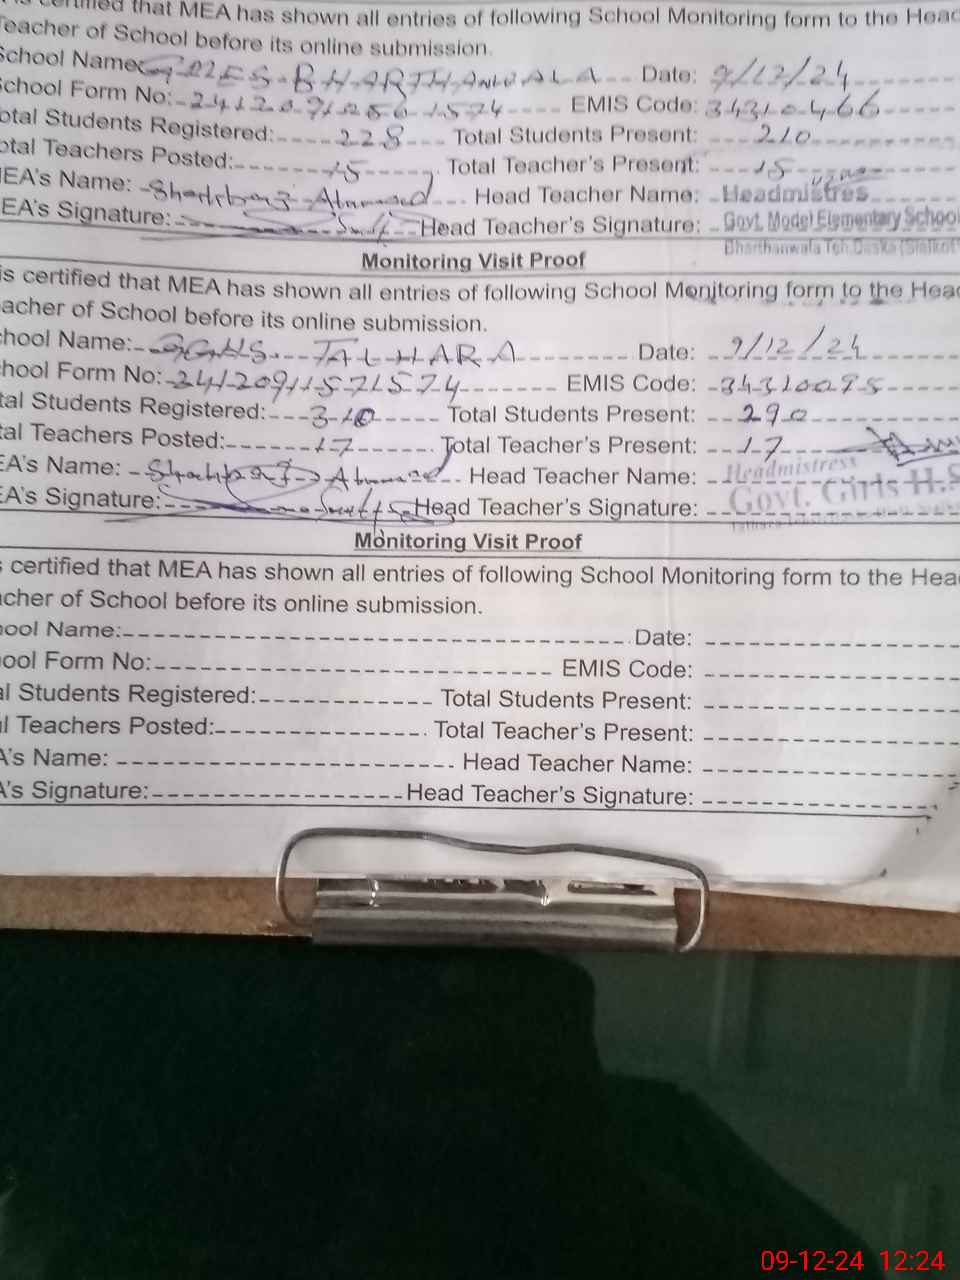 is certified that MEA has shown all entries of following School Monitoring form to the Head
Teacher of School before its online submission.
School Name: GMES BHARTHANWALA Date: 9/12/24
School Form No: EMIS Code: 34310466
otal Students Registered: 228 Total Students Present: 210
otal Teachers Posted: 15 Total Teacher's Present: 15
MEA's Name: Shahbaz Ahmad Head Teacher Name: Headmistres
EA's Signature: Head Teacher's Signature: Govt. Model Elementary School
Bharthanwala Teh. Daska (Sialkot)
Monitoring Visit Proof
is certified that MEA has shown all entries of following School Monitoring form to the Head
acher of School before its online submission.
hool Name: GGHS TALHARA Date: 9/12/24
hool Form No: 24120911571574 EMIS Code: 34310095
tal Students Registered: 310 Total Students Present: 290
tal Teachers Posted: 17 Total Teacher's Present: 17
EA's Name: Shahbaz Ahmad Head Teacher Name: Headmistress
EA's Signature: Head Teacher's Signature: Govt. Girls H.S
Monitoring Visit Proof
s certified that MEA has shown all entries of following School Monitoring form to the Head
acher of School before its online submission.
ool Name: Date:
ool Form No: EMIS Code:
al Students Registered: Total Students Present:
l Teachers Posted: Total Teacher's Present:
A's Name: Head Teacher Name:
A's Signature: Head Teacher's Signature:
09-12-24 12:24